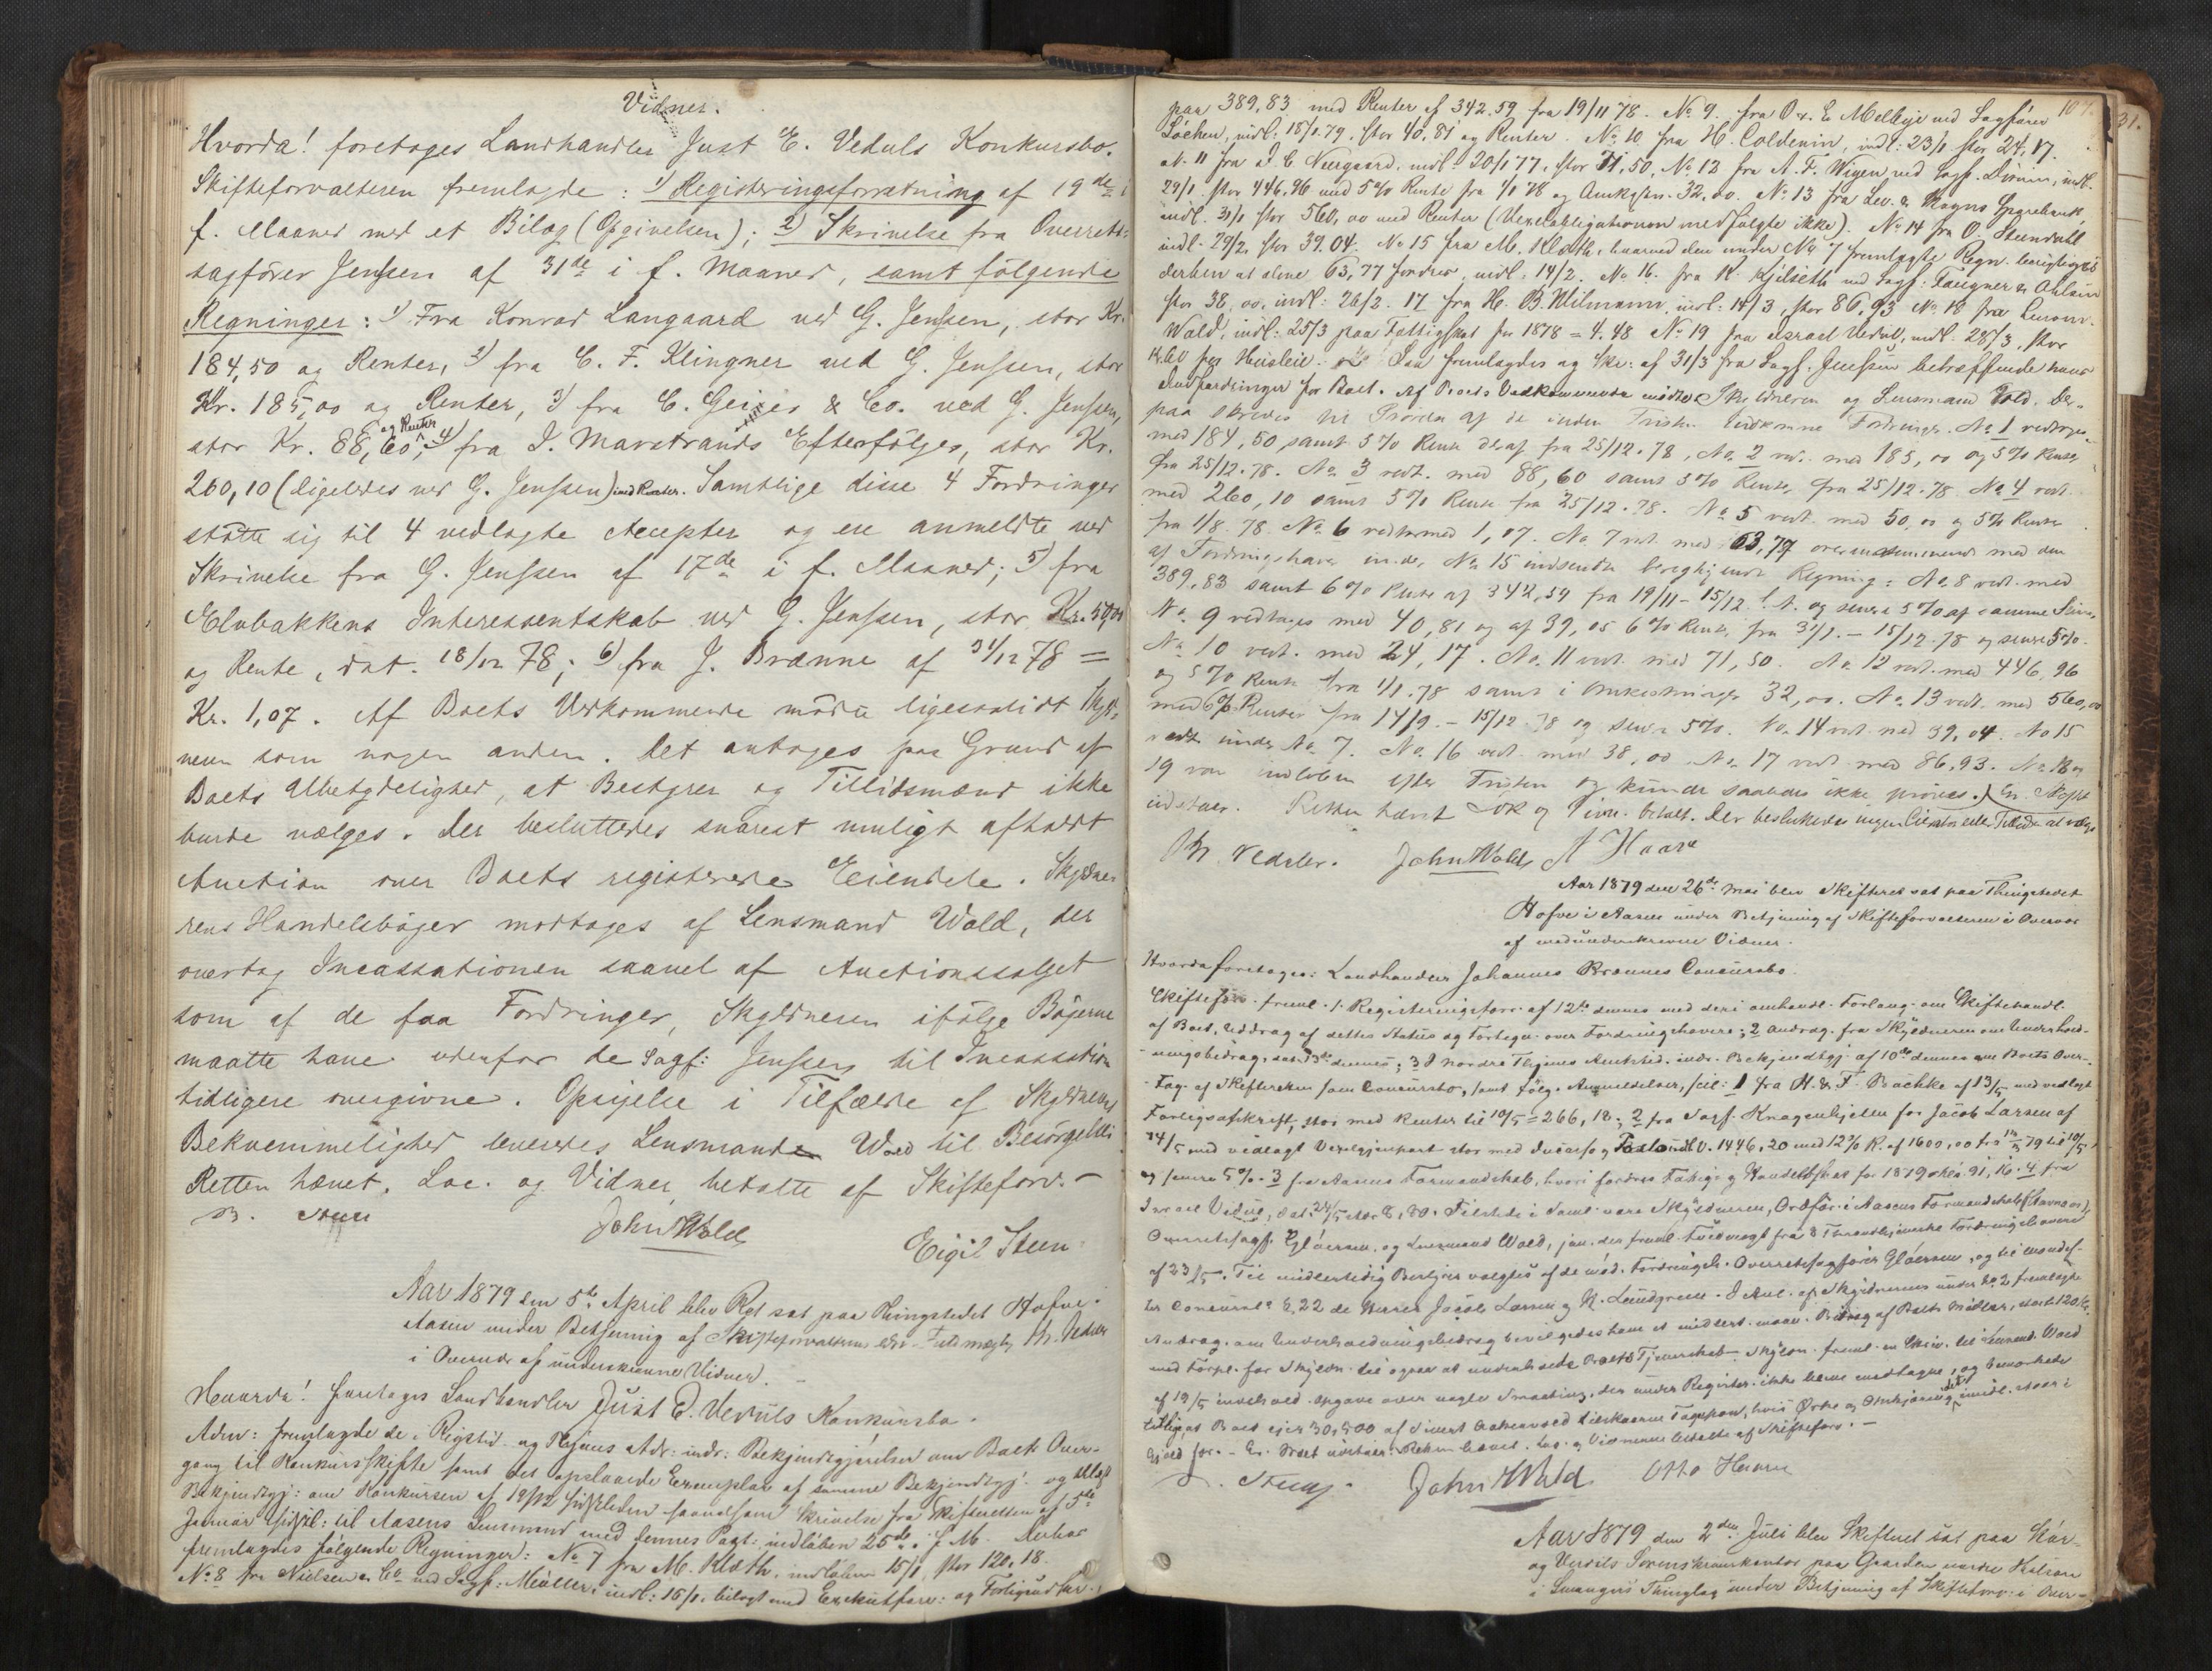 Vidner.
Hvorda! foretoges Landhandler Just E. Veduls Konkursbo.
Skifteforvalteren fremlagde: 1) Registeringsforretning af 19de i
f. Maaned med et Bilag (Opgivelsen); 2) Skrivelse fra Overrets-
sagfører Jenssen af 31de i f. Maaned, samt følgende
Regninger: 1) Fra Konrad Langaard ved G. Jenssen, stor Kr.
184,50 og Renter, 2) fra C. F. Klingner ved G. Jenssen, stor
Kr. 185,00 og Renter, 3) fra C. Geijer & Co. ved G. Jenssen,
stor Kr. 88,60, og Renter 4) fra J. Marstrands Efterfølger, stor Kr.
260,10 (ligeledes ved G. Jenssen) med Renter. Samtlige disse 4 Fordringer
støtte sig til 4 vedlagte Accepter og ere anmeldte ved
Skrivelse fra G. Jenssen af 17de i f. Maaned; 5) fra
Elvbakkens Interessentskab ved G. Jenssen, stor Kr. 50,00
og Rente, dat. 18/12 78; 6) fra J. Brænne af 31/12 78 =
Kr. 1,07. Af Boets Vedkommende mødte ligesaalidt Skyld-
neren som nogen anden. Det antoges paa Grund af
Boets Ubetydelighed, at Bestyrer og Tillidsmænd ikke
burde vælges. Der besluttedes snarest muligt afholdt
Auction over Boets registrerede Eiendele. Skyldne-
rens Handelsbøger modtages af Lensmand Wald, der
overtog Incassationen saavel af Auctionssalget
som af de faa Fordringer, Skyldneren ifølge Bøgerne
maatte have udenfor de Sagf: Jenssen til Incassation
tidligere overgivne. Opsigelse i Tilfælde af Skyldnerens
Bekvemmelighed leveredes Lensmand Wald til Besørgelse
Retten hævet. Loc. og Vidner betalte af Skifteforv. –
John Wald
Eigil Steen
Aar 1879 den 5te April blev Ret sat paa Thingstedet Hofve i
Aasen under Betjening af Skifteforvalterens edsv. Fuldmægtig Th. Vedeler
i Overvær af underskrevne Vidner. –
Hvorda! foretages Landhandler Just E. Veduls Konkursbo.
Adm: fremlagde de i Rigstid. og Thjems Adr: indr: Bekjendtgjørelser om Boets Over-
gang til Konkursskifte samt det opslaaede Exemplar af samme Bekjendtgj: og
Bekjendtgj: om Konkursen af 19/12 saavelsom Skrivelse fra Skifteretten af 5te
Januar til Aasens Lensmand med dennes Paat: indløben 25de i f. M. Derhos
fremlagdes følgende Regninger: No 7 fra M. Klæth, indløben 15/1, stor 120,18.
No 8 fra Nielsen & Co ved Sagf: Müller, indl: 16/1, bilagt med Exekutforr: og Forligsudskr.
107. 31.
paa 389,83 med Renter af 342,59 fra 19/11 78. No 9. fra O. E. Melbye ved Sagfører
Løchen, indl: 18/1 79, stor 40,81 og Renter. No 10 fra H. Coldevin, indl: 23/1 stor 24,17.
No 11 fra J. C. Neergaard, indl: 20/1 77, stor 71,50, No 12 fra A. F. Wigen ved Sagf. Divin, indl.
29/1, stor 446,96 med 5% Rente fra 1/1 78 og Omkostn. 32,00. No 13 fra Lev. & Rogns Sparebank,
indl. 31/1 stor 560,00 med Renter (Vexelobligationen medfulgte ikke). No 14 fra O. Stendahl
indl. 29/2, stor 39.04. No 15 fra M. Klæth, hvorved den under No 7 fremlagte Regn. berigtiges
derhen at alene 63,77 fordres, indl: 14/2. No 16. fra K. Kjelseth ved Sagf:
stor 38,00, indl: 26/2. 17 fra H. B. Wilmann, indl: 14/3, stor 86,93. No 18 fra Lensm.
Wald, indl: 25/3 paa Fattigskat for 1878 = 4.48 No 19 fra Israel Vedul, indl. 28/3, stor
for Husleie. Saa fremlagdes og Skr: af 31/3 fra Sagf. Jenssen betræffende hans
Indfordringer for Boet. Af Boets Vedkommende mødte Skyldneren og Lensmand Wald. Der-
paa skredes til Prøven af de inden Fristen indkomne Fordringer. No 1 vedtoges
med 184,50 samt 5% Rente deraf fra 25/12.78, No 2 vedt. med 185,00 og 5% Renter
fra 25/12.78. No 3 vedt. med 88,60 samt 5% Rente fra 25/12.78 No 4 vedt.
med 260,10 samt 5% Rente fra 25/12.78. No 5 vedt. med 50,00 og 5% Rente
fra 1/8.78. No 6 vedt. med 1,07. No 7 vedt. med 63,77 overensstemmende med den
af Fordringshaver under No 15 indsendte berigtigende Regning: No 8 vedt. med
389,83 samt 6% Rente af 342,59 fra 19/11 – 15/12 og senere 5% af samme Sum,
No 9 vedtoges med 40,81 og af 39,05 6% Rente fra 31/1. – 15/12.78 og senere 5%.
No 10 vedt. med 24,17. No 11 vedt. med 71,50. No 12 vedt. med 446,96
og 5% Rente fra 1/1.78 samt i Omkostninger 32,00. No 13 vedt. med 560,00
med 6% Renter fra 14/9. – 15/12 78 og senere 5%. No 14 vedt. med 39,04. No 15
vedt. under No 7. No 16 vedt. med 38,00 No 17 vedt. med 86,93. No 18 og
19 var indløben efter Fristen og kunde saaledes ikke prøves.
udstaar. Retten hævet Lok. og Vidn. betalt. Der besluttedes ingen
Th. Vedeler. John Wald A Haave
Aar 1879 den 26de Mai blev Skifteret sat paa Thingstedet
Hofve i Aasen under Betjening af Skifteforvalteren i Overvær
af medunderskrevne Vidner.
Hvorda foretoges: Landhandler Johannes Brænnes Concursbo.
Skifteforv. freml. 1. Registeringsforr. af 12te dennes med deri omhandl. Forlang. om Skiftebehandl.
af Boet, Uddrag af dettes Status og Fortegn. over Fordringshavere; 2 Andrag. fra Skyldneren om Underhold-
ningsbidrag, dat. 13de dennes; 3 I Nordre Thjems Amtstid. indr. Bekjendtgj. af 10de dennes om Boets Over-
Tag. af Skifteretten som Concursbo, samt følg. Anmeldelser, scil: 1 fra H. & F. Bachke af 13/5 med vedlagt
Forligsafskrift, stor med Renter til 10/5 = 266,18; 2 fra Sagf. Kragenhjelm for Jacob Larsen af
14/5 med vedlagt Vexel stor med 1446,20 med 12% R. af 1600,00 fra 79 til 10/5
og senere 5%. 3 fra Aasens Formandskab, hvori fordres Fattig- og Handelsskat for 1879 91,16. 4 fra
Israel Vedul, dat. 24/5, stor 8,80. Tilstede i Saml. vare Skyldneren, Ordfør. i Aasens Formandskab
Overretssagf. Gløersen, og Lensmand Wald, freml. Fuldmagt fra 8 Throndhjemske Fordringshavere
af 23/5. Til midlertidig Bestyrer valgtes af de mød. Fordringsh. Overretssagfører Gløersen, og til
ter Concursl. § 22 de Herrer Jacob Larsen og N. Lundgreen. I Anl. af Skyldnerens under No 2 fremlagte
Andrag. om Underholdningsbidrag bevilgedes ham et midlert. maan. Bidrag af Boets Midler, stort 120 Kr.
med Forpl. for Skyldn. til ogsaa at underholde Boets Tjenerskab. Skyldn. freml. en Skriv. til Lensmd. Wald
af 19/5 indehold. Opgave over nogle Smaating, der under Register. ikke bleve medtagne, og bemærkede
at Boet ejer 30,500 af Sivert Aakervold tilskaarne Tagspon, hvis
Gjæld for. – Retten hævet. Loc. og Vidnerne betalte af Skifteforv. –
John Wald Otto Haave
Aar 1879 den 2den Juli blev Skifteret sat paa Stør-
og Verdals Sorenskriverkontor paa Gaarden nordre
i Thinglag under Betjening af Skifteforv. i Over-